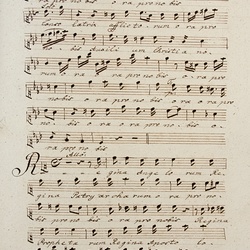 ra pro no bis o ra pro no bis
Conso latrix afflicto rum o ra pro
bis Auxili um Christia no
rum o ra ra pro no bis o ra pro
nobis o ra pro no bis o ra pro no
bis o ra pro no bis o ra pro
no bis
Duo
Regina Ange lo rum Re
gina Patryarcharum o ra pro no
bis pro nobis o ra pro nobis Regina
Propheta rum Regina Aposto lo